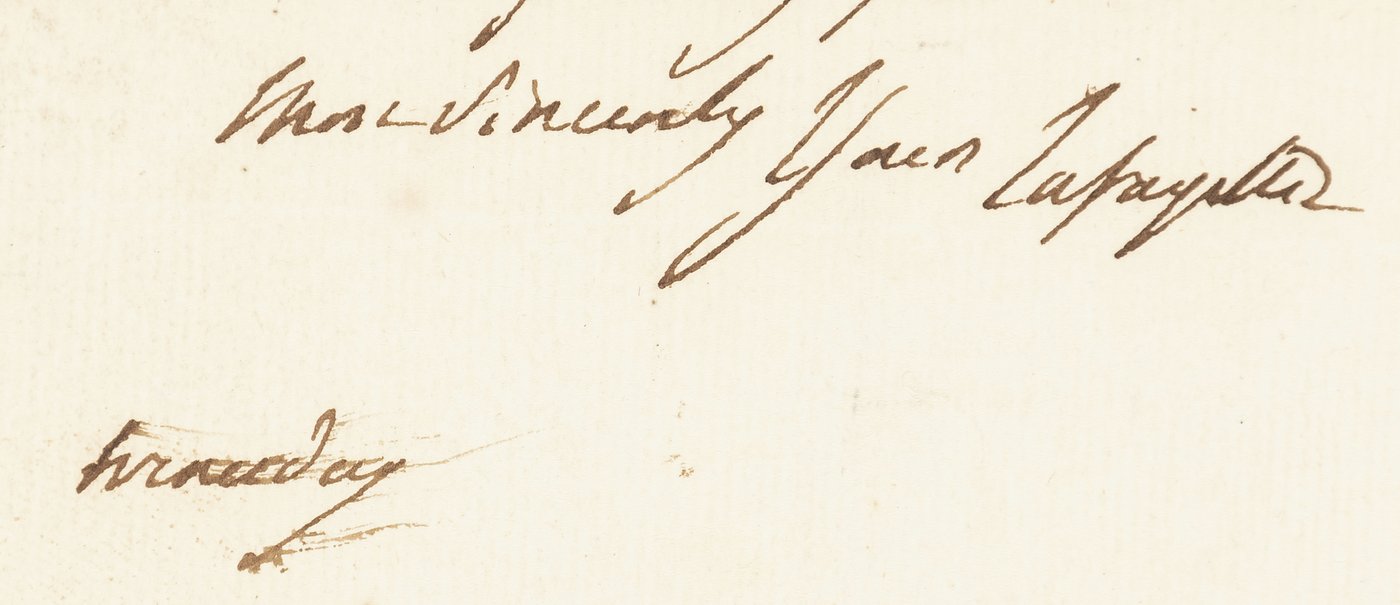 Most Sincerely Yours Lafayette